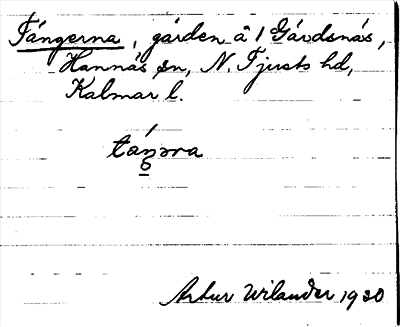 Tángerna, gården å 1 Gårdsnäs,
Hannäs sn, N. Tjusts hd,
Kalmar l.
Artur Wilander 1920